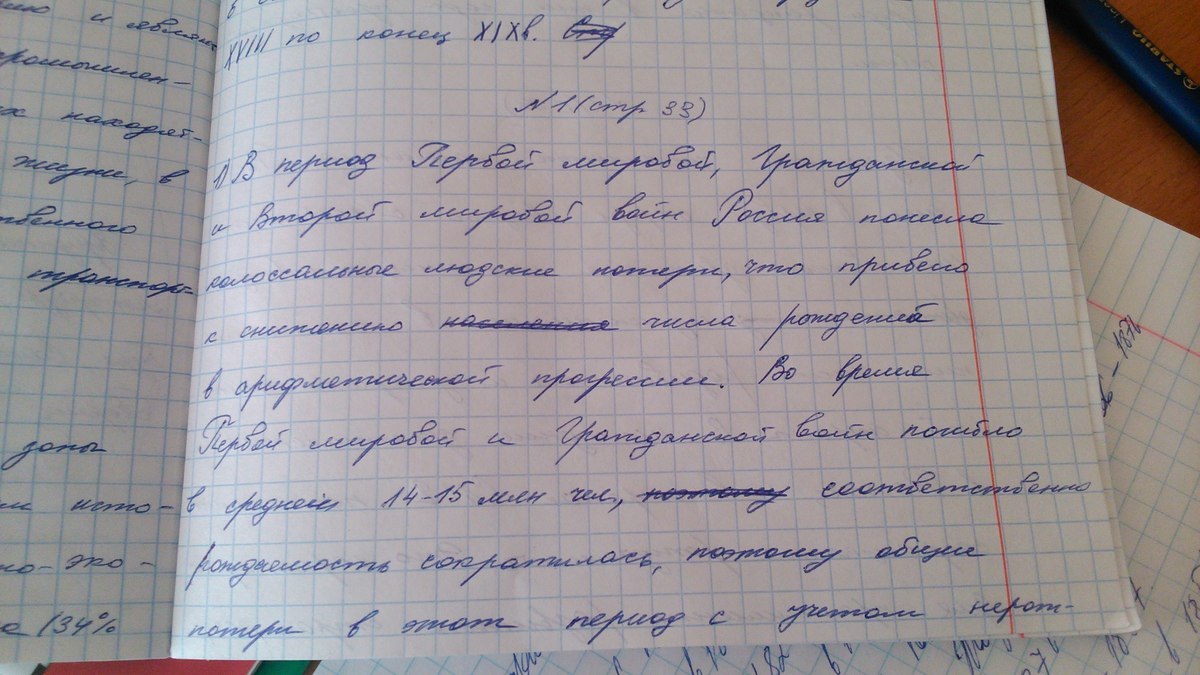 XVIII по конец XIXв.
N1 (стр 33)
1) В период Первой мировой, Гражданской
и Второй мировой войн Россия понесла
колоссальные людские потери, что привело
к снижению населения числа рождений
в арифметической прогрессии. Во время
Первой мировой и Гражданской войн погибло
в среднем 14-15 млн чел, поэтому соответственно
рождаемость сократилась, поэтому общие
потери в этот период с учетом нерож-
и являю
промышлен-
х находят-
жизни, в
твенного
транспор-
зоны
исто-
но-эко-
134%
STABILO